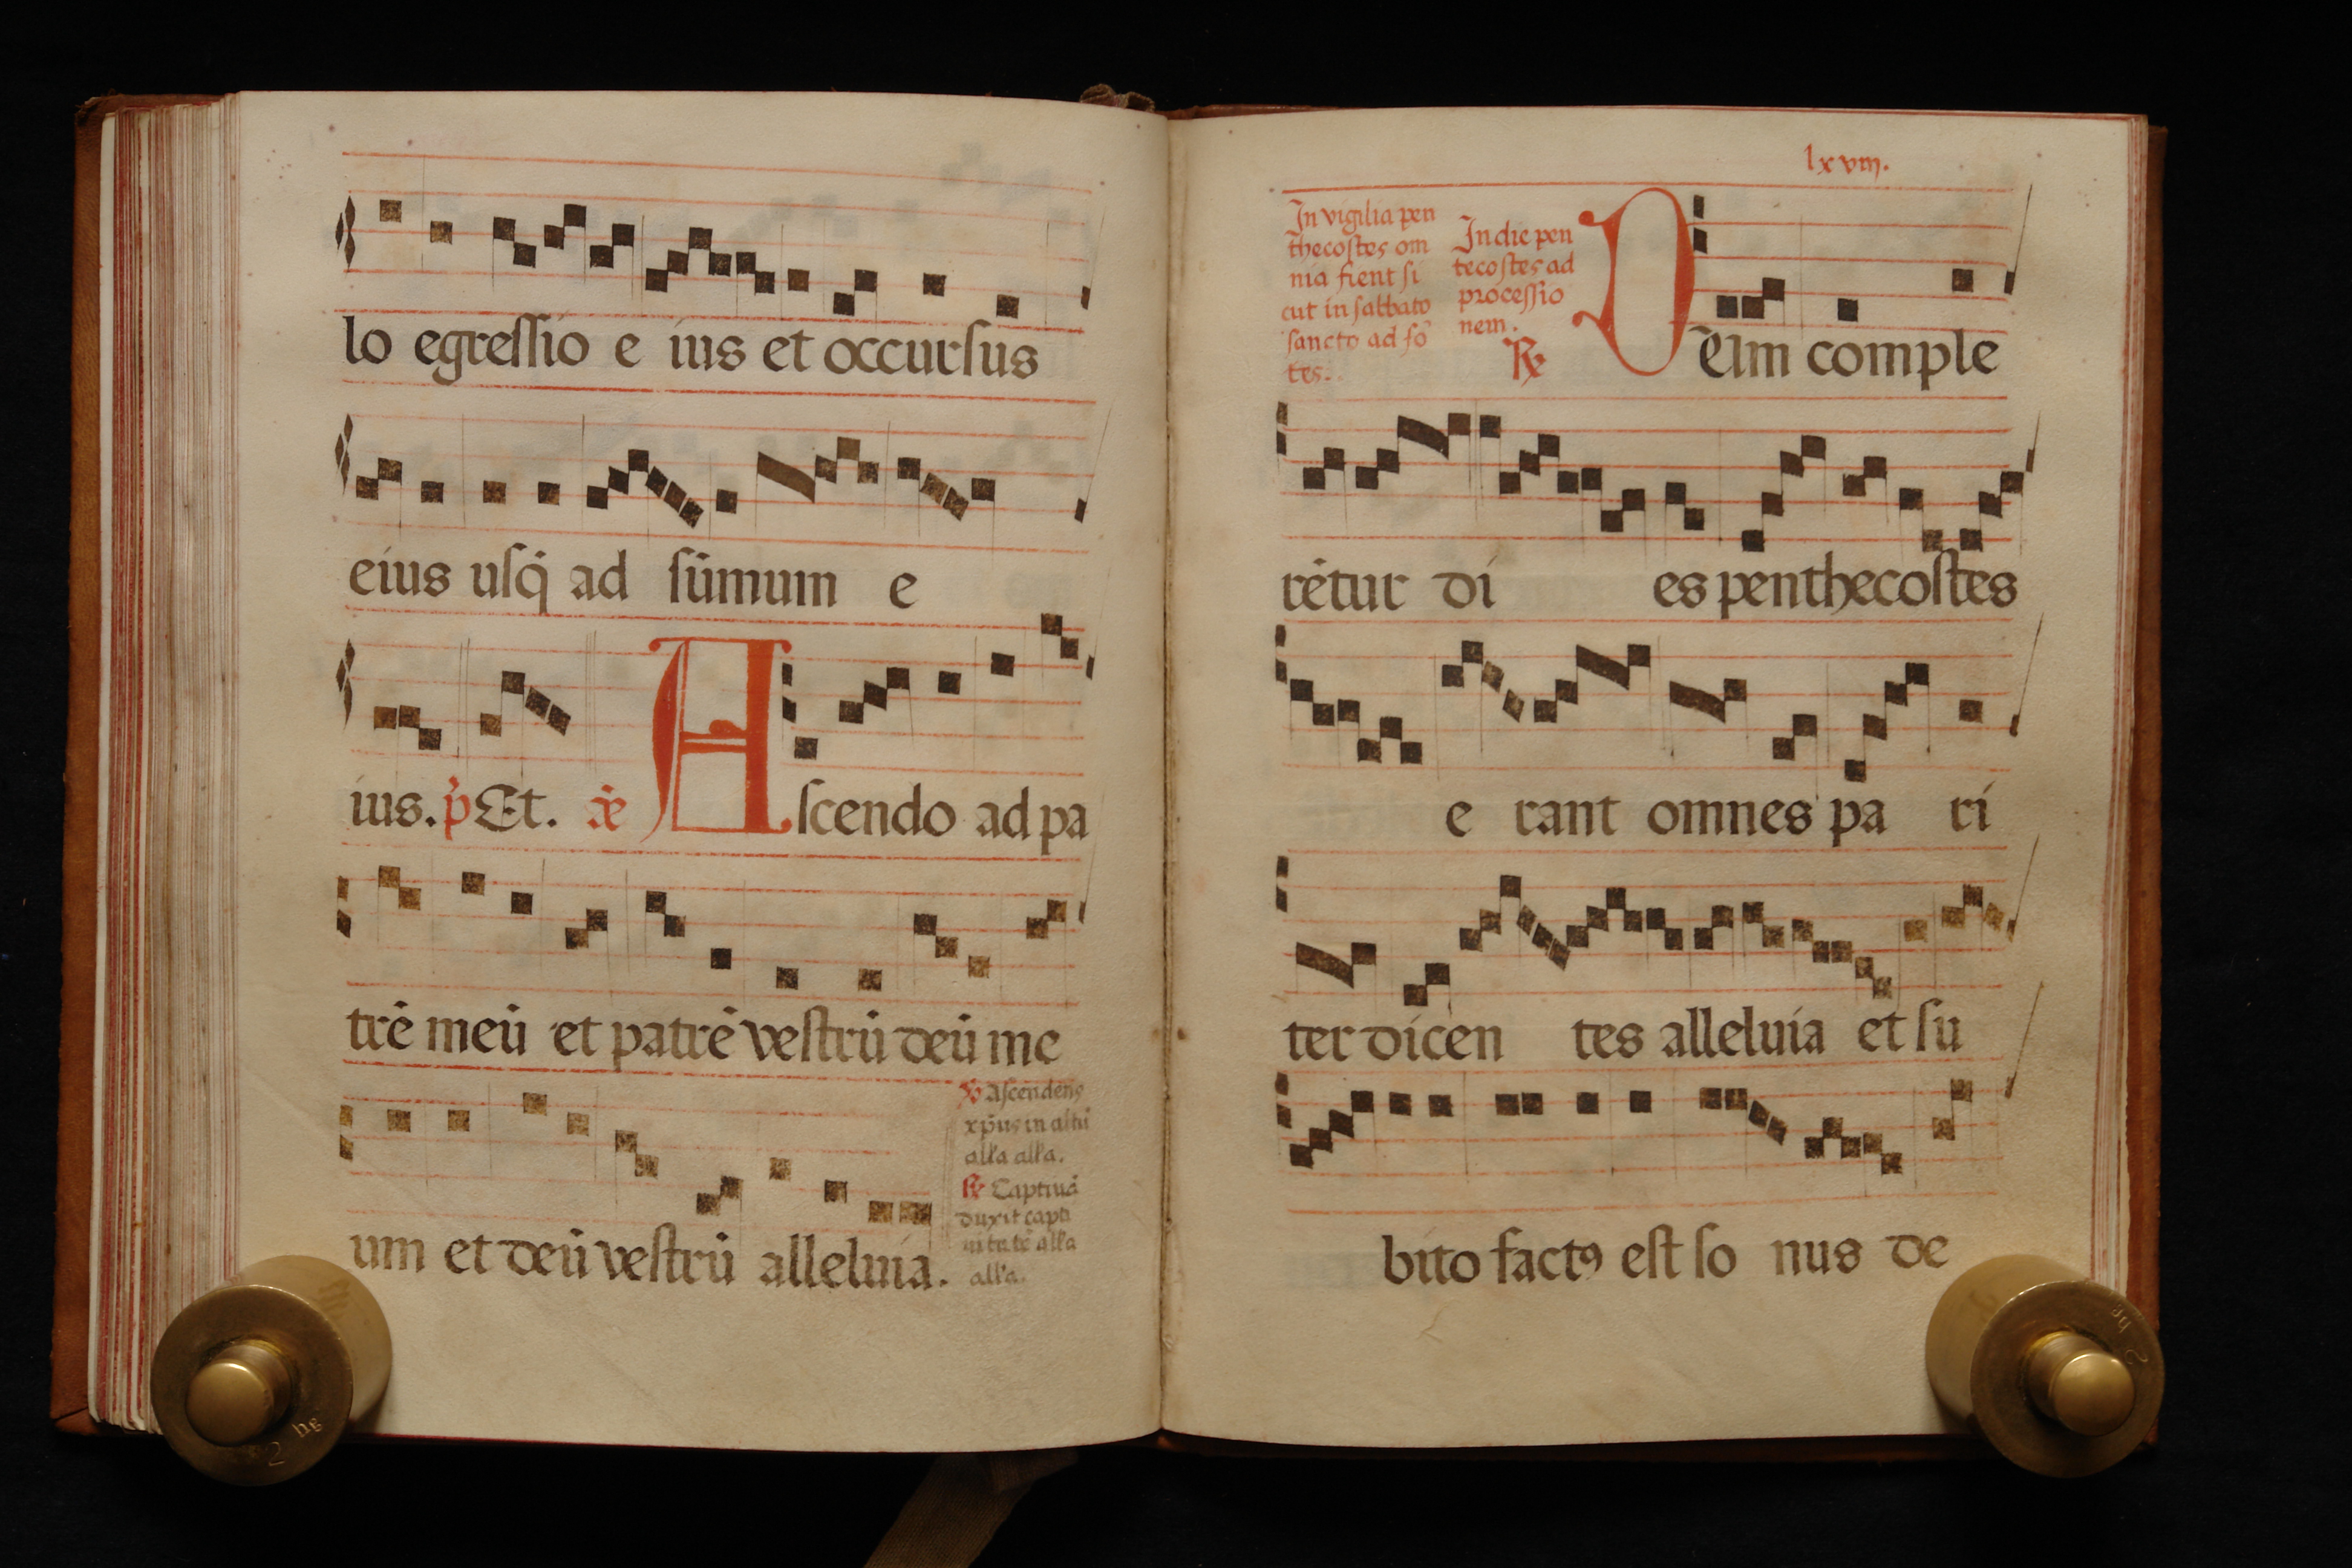 lo egressio e ius et occursus
eius usq̃ ad sũmum e
ius. p̃ Et. añ Ascendo ad pa
trẽ meũ et patrẽ vestrũ deũ me
um et deũ vestrũ alleluia.
℣ Ascendens
xp̃us in altũ
all'a all'a.
℟ Captiuã
duxit capti
uitatẽ all'a
all'a.
lxviij.
In vigilia pen
thecostes om
nia fient si
cut in sabbato
sancto ad fõ
tes.
In die pen
tecostes ad
processio
nem.
℟ Dũm comple
rẽtur di es penthecostes
e rant omnes pa ri
ter dicen tes alleluia et su
bito factꝰ est so nus de
2 hg
2 hg